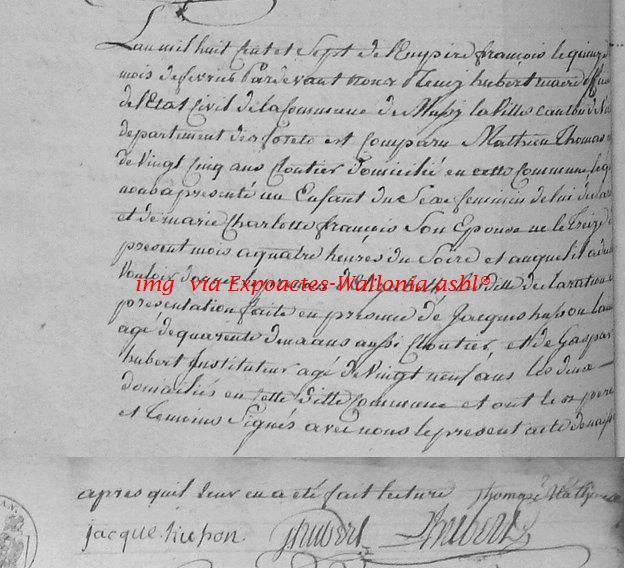 L'an mil huit Cent et Sept de l'Empire françois le quinze
mois de fevrier Pardevant nous Remy hubert maire offi
de l'Etat Civil de la Commune de Mussy la Ville canton de
departement des forets est Comparu Mathieu Thomas
de Vingt Cinq ans Cloutier domicilié en cette Commune
nous a presenté un Enfant du Sexe feminin de lui declarant
et de marie Charlotte françois Son Epouse né le treize d
present mois a quatre heures du Soire et auquel il a de
Vouloir donner dite declaration e
img via Expoactes-Wallonia.asbl®
presentation faite en presence de Jacques husson
agé de quarante deux ans aussi Cloutier et de Gaspar
hubert Instituteur agé de Vingt neuf ans les deux
domiciliés en cette ditte Commune et ont le pere
et temoins Signés avec nous le present acte de naiss
apres quil leur en a été fait lecture thomas Mathieu
jacque husson Ghubert Rhubert